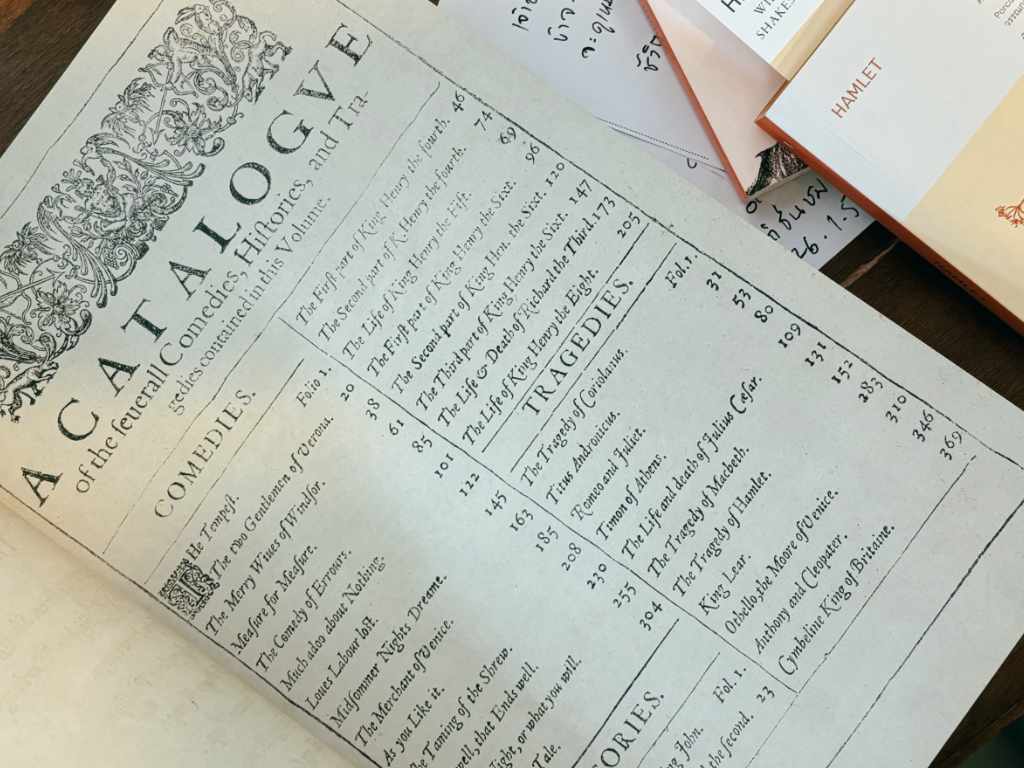 A CATALOGVE
of the ſeuerall Comedies, Hiſtories, and Tra-
gedies contained in this Volume.
COMEDIES.
THe Tempeſt. Folio 1.
The two Gentlemen of Verona. 20
The Merry Wiues of Windſor. 38
Meaſure for Meaſure. 61
The Comedy of Errours. 85
Much adoo about Nothing. 101
Loues Labour loſt. 122
Midſommer Nights Dreame. 145
The Merchant of Venice. 163
As you Like it. 185
The Taming of the Shrew. 208
well, that Ends well. 230
Night, or what you will. 255
Tale. 304
ORIES.
John. Fol. 1.
the ſecond. 23
The Firſt part of King Henry the fourth. 46
The Second part of K. Henry the fourth. 74
The Life of King Henry the Fift. 69
The Firſt part of King Henry the Sixt. 96
The Second part of King Hen. the Sixt. 120
The Third part of King Henry the Sixt. 147
The Life & Death of Richard the Third. 173
The Life of King Henry the Eight. 205
TRAGEDIES.
The Tragedy of Coriolanus. Fol. 1.
Titus Andronicus. 31
Romeo and Juliet. 53
Timon of Athens. 80
The Life and death of Julius Cæſar. 109
The Tragedy of Macbeth. 131
The Tragedy of Hamlet. 152
King Lear. 283
Othello, the Moore of Venice. 310
Anthony and Cleopater. 346
Cymbeline King of Britaine. 369
WI
SHAKES
HAMLET
26. 1.5